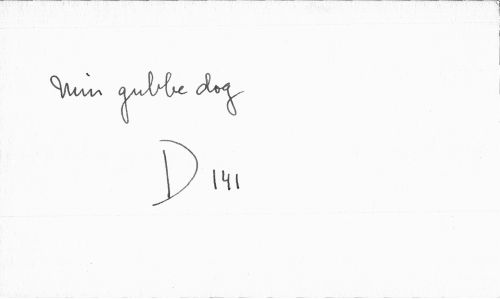 Min gubbe dog
D 141